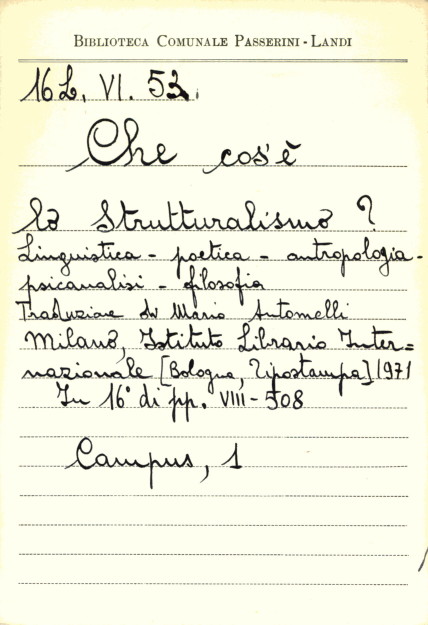 BIBLIOTECA COMUNALE PASSERINI - LANDI
16 L. VI. 52.
Che cos'è
lo Strutturalismo ?
Linguistica - poetica - antropologia -
psicanalisi - filosofia
Traduzione di Mario Antomelli
Milano, Istituto Librario Inter=
nazionale [Bologna, Tipostampa] 1971
In 16° di pp. VIII - 508
Campus, 1